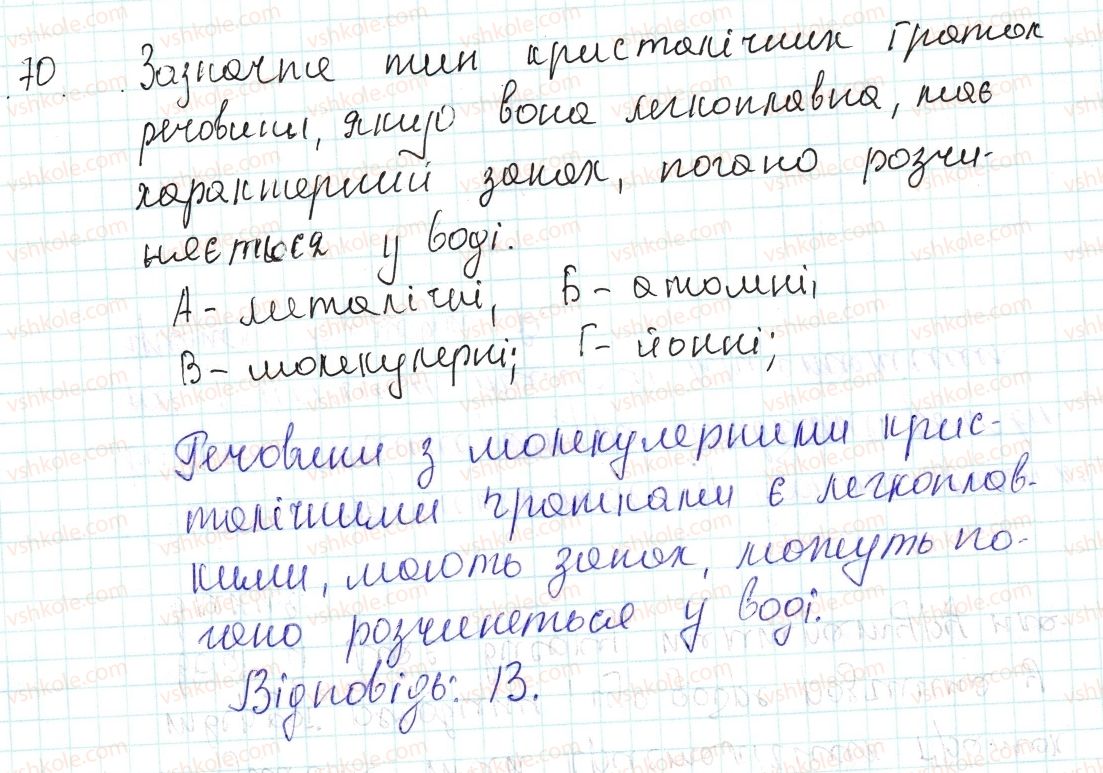 70. Зазначте тип кристалічних ґраток
речовини, якщо вона легкоплавка, має
характерний запах, погано розчи-
няється у воді.
А - металічні, Б - атомні,
В - молекулярні; Г - йонні;
Речовини з молекулярними крис-
талічними ґратками є легкоплав-
кими, мають запах, можуть по-
гано розчиняться у воді.
Відповідь: В.